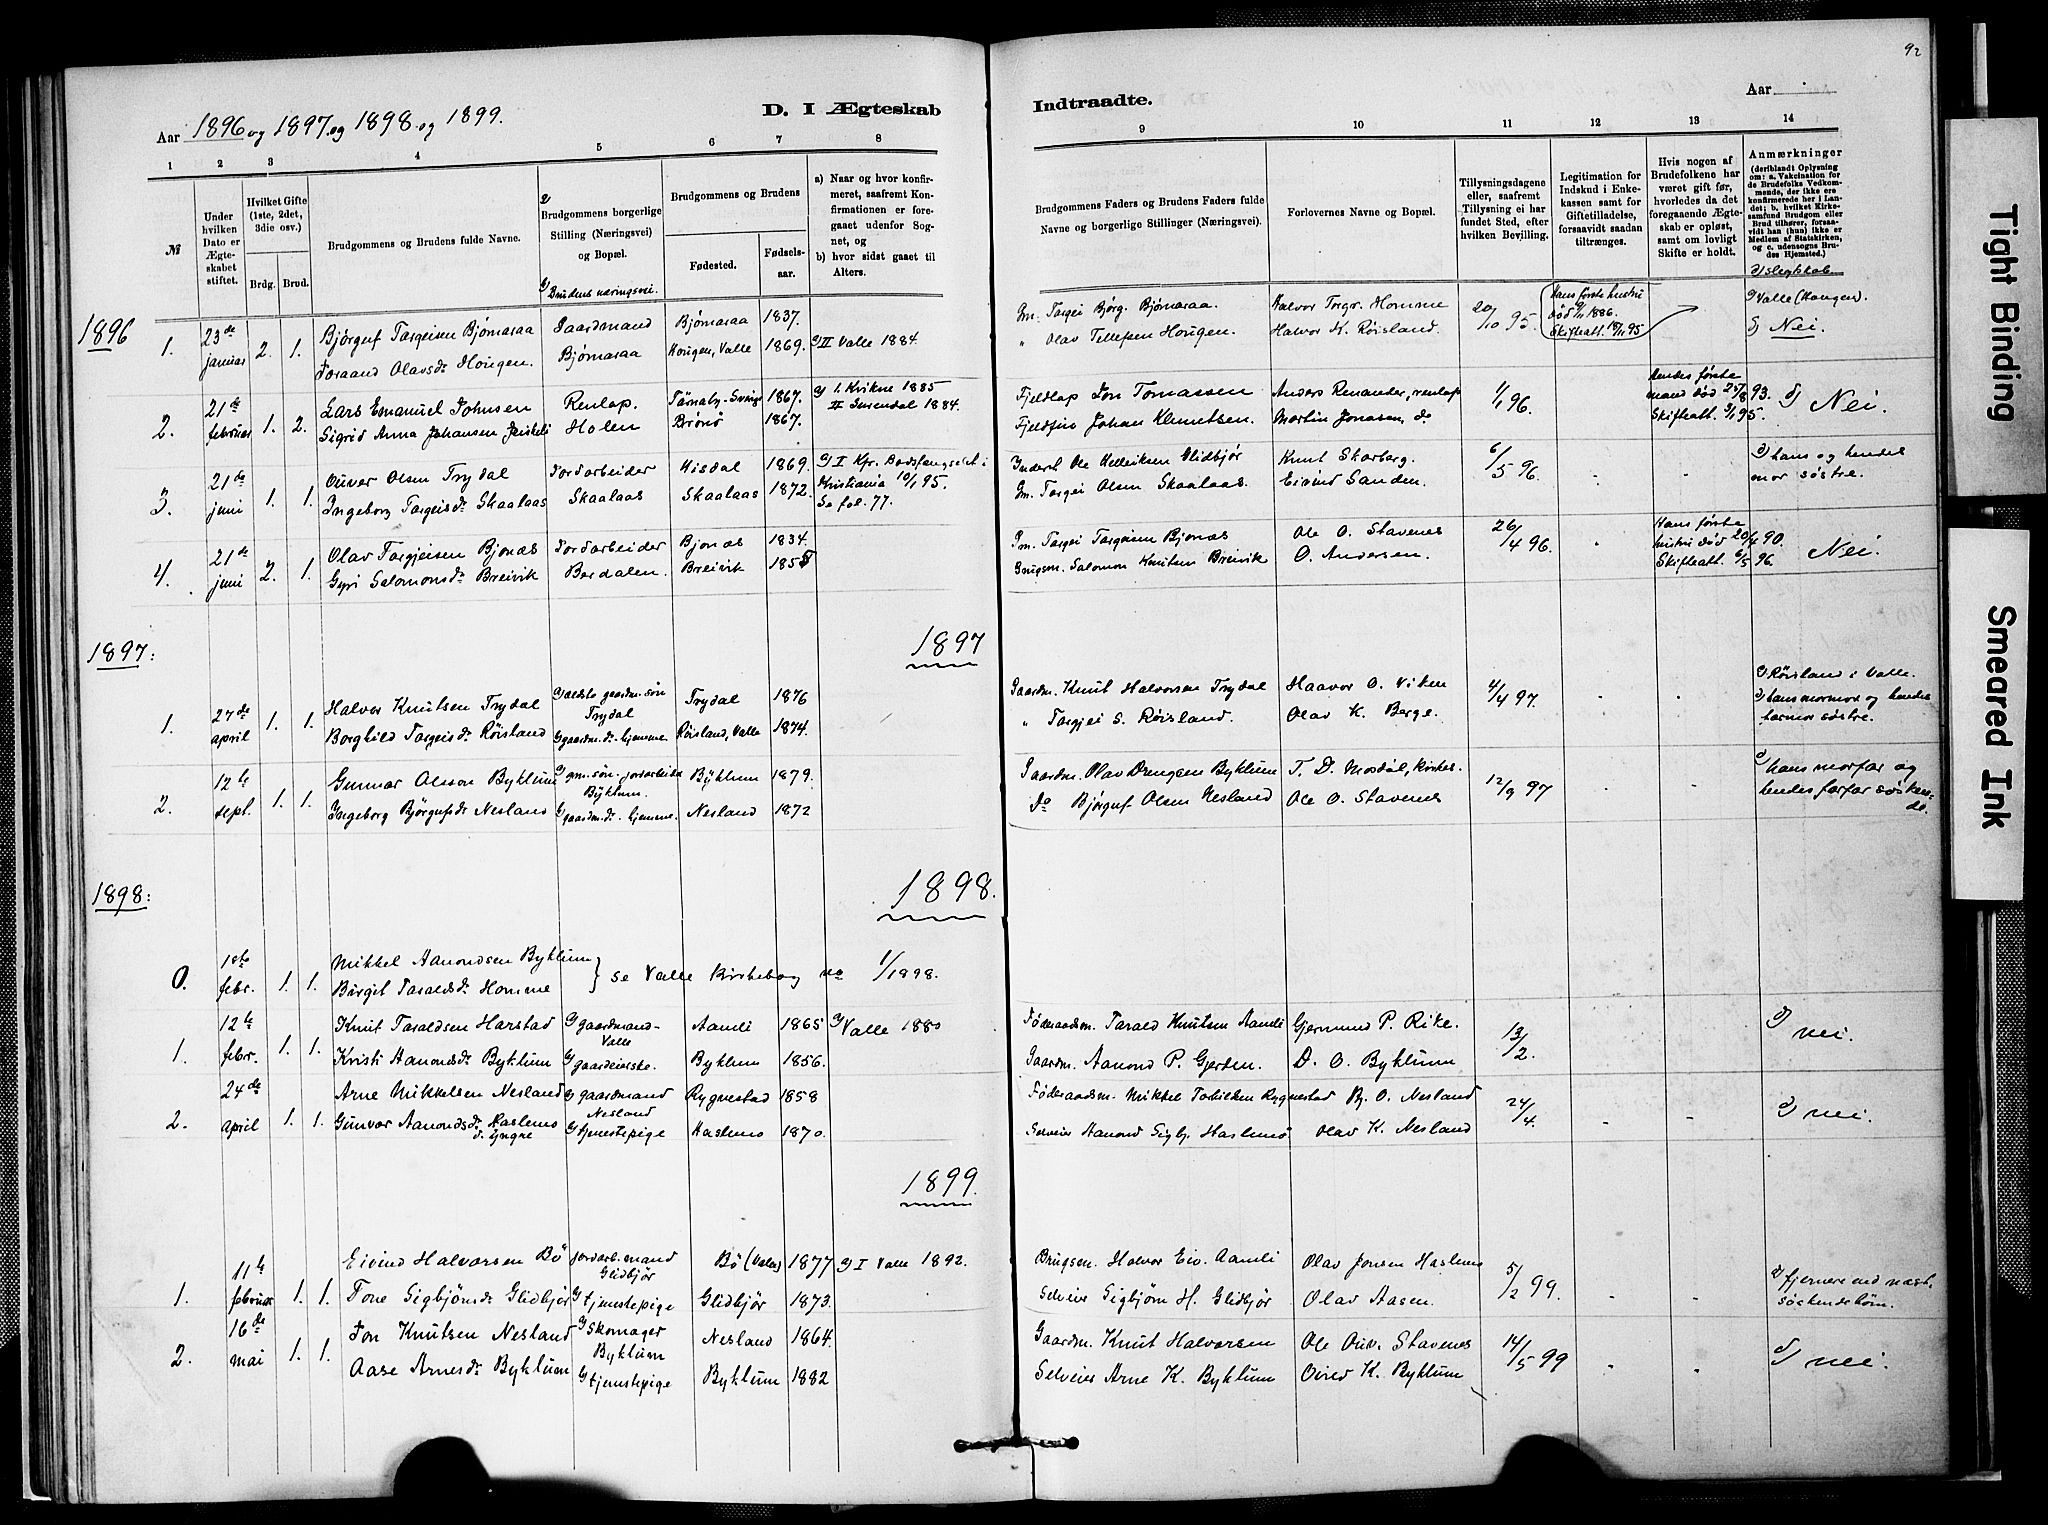 92
Aar 1896 og 1897 og 1898 og 1899.
D. I Ægteskab
Indtraadte.
Aar
1 2 3 4 5 6 7 8
9 10 11 12 13 14
№
Under hvilken Dato er Ægteskabet stiftet.
Hvilket Gifte (1ste, 2det, 3die osv.)
Brdg. Brud.
Brudgommens og Brudens fulde Navne.
2) Brudgommens borgerlige Stilling (Næringsvei) og Bopæl.
1) Brudens næringsvei.
Brudgommens og Brudens
Fødested.
Fødselsaar.
a) Naar og hvor konfirmeret, saafremt Konfirmationen er foregaaet udenfor Sognet, og
b) hvor sidst gaaet til Alters.
Brudgommens Faders og Brudens Faders fulde Navne og borgerlige Stillinger (Næringsvei).
Forlovernes Navne og Bopæl.
Tillysningsdagene eller, saafremt Tillysning ei har fundet Sted, efter hvilken Bevilling.
Legitimation for Indskud i Enkekassen samt for Giftetilladelse, forsaavidt saadan tiltrænges.
Hvis nogen af Brudefolkene har været gift før, hvorledes da det foregaaende Ægteskab er opløst, samt om lovligt Skifte er holdt.
Anmærkninger (deriblandt Oplysning om: a. Vakcination for de Brudefolks Vedkommende, der ikke ere konfirmerede her i Landet; b. hvilket Kirkesamfund Brudgom eller Brud tilhører, forsaavidt han (hun) ikke er Medlem af Statskirken, og c. udensogns Brudes Hjemsted.)
d) slegtskab
1896
1. 23de januar 2. 1.
Bjørguf Torgeisen Bjørnaraa Gaardmand Bjørnaraa 1837.
Olavsdr Hougen. Bjørnaraa Hougen, Valle 1869. a) II Valle 1884.
Gm. Torgei Bjørg. Bjørnaraa. Halvor Torgr. Homme 20/10 95.
" Olav Tellefsen Hougen. Halvor K. Røisland.
Hans første hustru død 9/11 1886. Skifteatt.
c) Valle (Hougen).
d) Nei.
2. 21de februar 1. 2.
Lars Emanuel Johnsen Renlap. Tärnaby-Sverige 1867. a) I. Kvikne 1885
Sigrid Anna Johansen Holen Brønø 1867. II Surendal 1884.
Fjeldlap Jon Tomassen Anders Renander, renlap 1/1 96.
Fjeldfin Johan Klemetsen. Martin Jonasen, do
Hendes første mand død 25/8 93. Skifteatt. 3/1 95.
d) Nei.
3. 21de juni 1. 1.
Ouver Olsen Trydal Jordarbeider Hisdal 1869. a) I Kfr. Bodsfængselet i
Ingeborg Torgeisdr Skaalaas Skaalaas Skaalaas 1872. Kristiania 10/1 95.
Se fol. 77.
Inderst Ole Hellriksen Glidbjør Knut Skarberg. 6/5 96.
Gm. Torgei Olsen Skaalaas. Eivind Sanden.
d) hans og hendes mor søstre.
4. 21de juni 2. 1.
Olav Torgjeisen Bjonas Jordarbeider Bjonas 1834.
Gyri Salomonsdr Breivik Berdalen. Breivik 1855
Gm. Torgei Torgeisen Bjonas Ole O. Stavenes 26/4 96.
Brugsm. Salomon Knutsen Breivik O. Andersen.
Hans første hustru død 20/4 90. Skifteatt. 6/5 96.
Nei.
1897:
1897
1. 27de april 1. 1.
Halvor Knutsen Trydal a) ældste gaardm. søn Trydal Trydal 1876
Borghild Torgeisdr Røisland gaardm. dr. hjemme. Røisland, Valle 1874.
Gaardm. Knut Halvorsen Trydal Haavor O. Viken 4/4 97.
" Torgjei S. Røisland. Olav K. Berge.
c) Røisland i Valle.
d) hans mormor og hendes farmor søstre.
2. 12te sept. 1. 1.
Gunnar Olsson Byklum gm. søn. jordarbeider Byklum. Byklum 1879.
Ingeborg Bjørgufsdr Nesland gaardm. dr. hjemme. Nesland 1872
Gaardm. Olav Drengsen Byklum T. D. Mosdøl, kirkes. 12/9 97
do Bjørguf Olsen Nesland Ole O. Stavenes
d) hans morfar og hendes farfar søskende.
1898:
1898.
0. 1ste febr. 1. 1.
Mikkel Aanondsen Byklum
Birgit Taraldsdr Homme
se Valle Kirkebog no 1/1898.
1. 12te febr. 1. 1.
Knut Taraldsen Harstad gaardmand-Valle Aamli 1865 a) Valle 1880
Kristi Aanondsdr Byklum gaardeierske. Byklum 1856.
Føderaadsm. Tarald Knutsen Aamli Gjermund P. Rike. 13/2.
Gaardm. Aanond P. Gjerden. D. O. Byklum
d) nei.
2. 24de april 1. 1.
Arne Mikkelsen Nesland gaardmand Nesland Rygnestad 1858
Gunvor Aanondsdr Haslemo d. yngre tjenestepige Haslemo 1870.
Føderaadsm. Mikkel Tarkilsen Rygnestad Bj. O. Nesland 24/4.
Selveier Aanond Sigbj. Haslemo Olav K. Nesland
d) nei.
1899.
1. 11te februar 1. 1.
Eivind Halvorsen Bø jordarb. mand Glidbjør Bø (Valle) 1877 a) I Valle 1892.
Tone Sigbjørnsdr Glidbjør tjenestepige Glidbjør 1873.
Brugsm. Halvor Eiv. Aamli Olav Jonsen Haslemo 5/2 99.
Selveier Sigbjørn H. Glidbjør Olav Aasen.
d) fjernere end næst-søskendebørn.
2. 16de mai 1. 1.
Jon Knutsen Nesland Skomager Byklum Nesland 1864.
Aase Arnesdr Byklum tjenestepige Byklum 1882
Gaardm. Knut Halvorsen Ole Ouv. Stavenes 14/5 99
Selveier Arne K. Byklum Eivind K. Byklum
d) nei.
Tight Binding
Smeared Ink